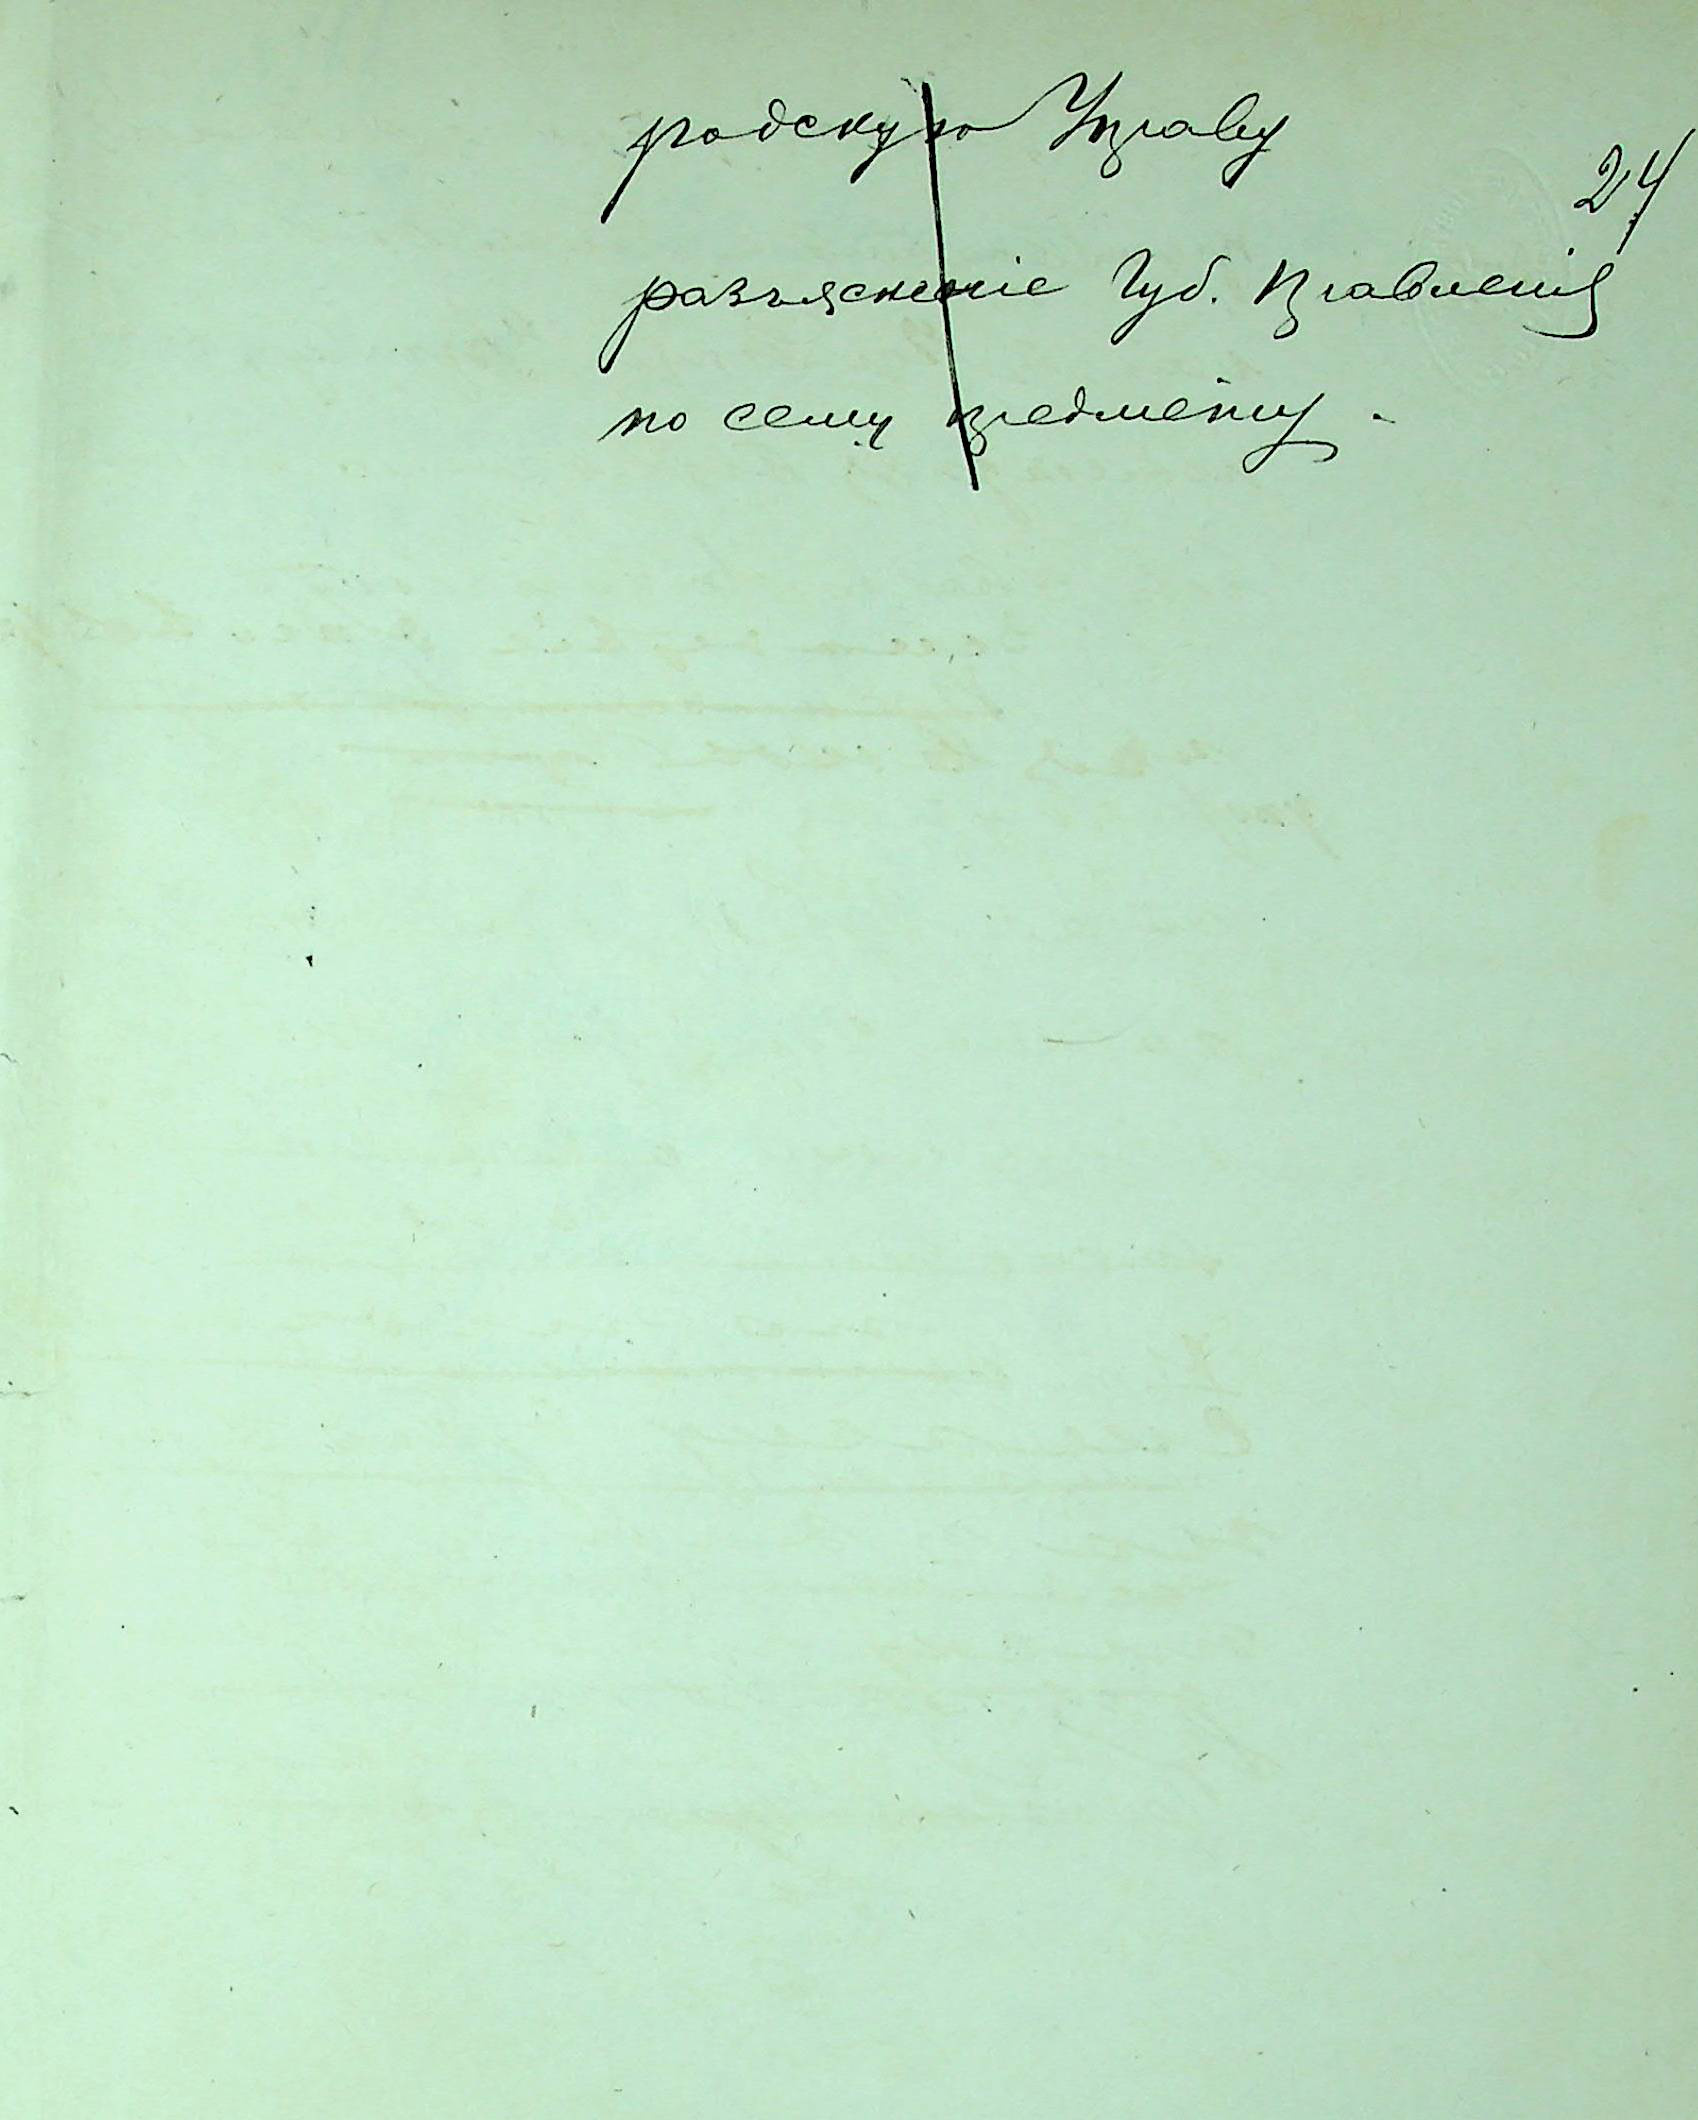 родскую Управу
24
разъясненіе Губ. Правленія
по сему предмету.